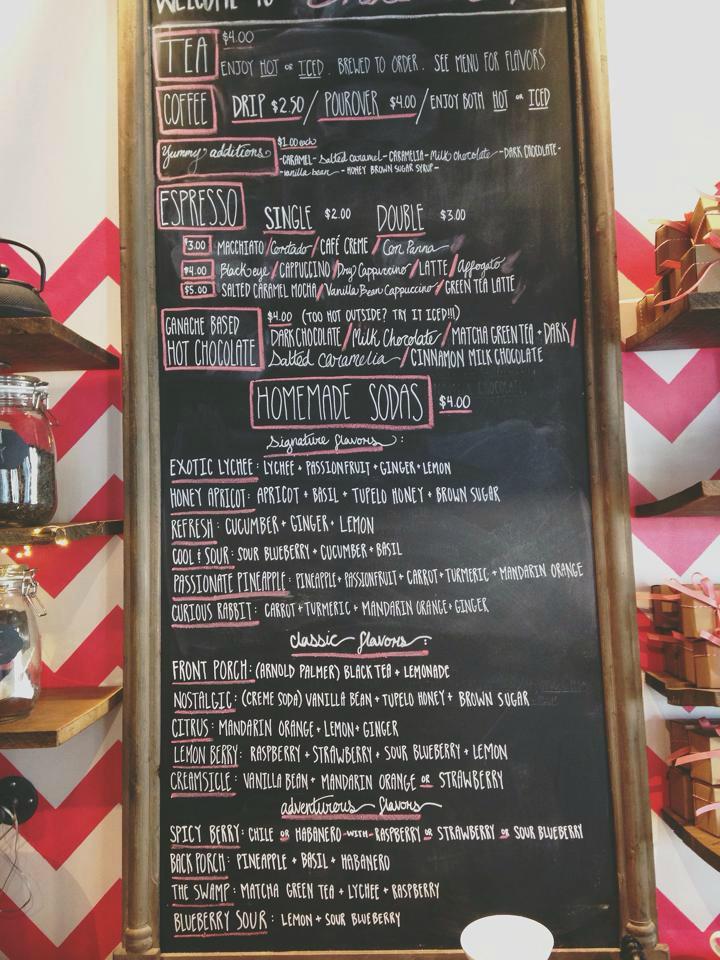 WELCOME TO
TEA $4.00
ENJOY HOT OR ICED. BREWED TO ORDER. SEE MENU FOR FLAVORS
COFFEE DRIP $2.50 / POUROVER $4.00 / ENJOY BOTH HOT OR ICED
Yummy additions $1.00 each
-CARAMEL- Salted caramel -CARAMELIA- Milk chocolate -DARK CHOCOLATE-
-vanilla bean- HONEY BROWN SUGAR SYRUP-
ESPRESSO SINGLE $2.00 DOUBLE $3.00
$3.00 MACCHIATO / Cortado / CAFÉ CREME / Con Panna
$4.00 Black eye / CAPPUCCINO / Dry Cappuccino / LATTE / Affogato
$5.00 SALTED CARAMEL MOCHA / Vanilla Bean Cappuccino / GREEN TEA LATTE
GANACHE BASED HOT CHOCOLATE $4.00 (TOO HOT OUTSIDE? TRY IT ICED!!!)
DARK CHOCOLATE / Milk Chocolate / MATCHA GREEN TEA + DARK /
Salted Caramelia / CINNAMON MILK CHOCOLATE
HOMEMADE SODAS $4.00
Signature flavors:
EXOTIC LYCHEE: LYCHEE + PASSIONFRUIT + GINGER + LEMON
HONEY APRICOT: APRICOT + BASIL + TUPELO HONEY + BROWN SUGAR
REFRESH: CUCUMBER + GINGER + LEMON
COOL & SOUR: SOUR BLUEBERRY + CUCUMBER + BASIL
PASSIONATE PINEAPPLE: PINEAPPLE + PASSIONFRUIT + CARROT + TURMERIC + MANDARIN ORANGE
CURIOUS RABBIT: CARROT + TURMERIC + MANDARIN ORANGE + GINGER
classic flavors:
FRONT PORCH: (ARNOLD PALMER) BLACK TEA + LEMONADE
NOSTALGIC: (CREME SODA) VANILLA BEAN + TUPELO HONEY + BROWN SUGAR
CITRUS: MANDARIN ORANGE + LEMON + GINGER
LEMON BERRY: RASPBERRY + STRAWBERRY + SOUR BLUEBERRY + LEMON
CREAMSICLE: VANILLA BEAN + MANDARIN ORANGE OR STRAWBERRY
adventurous flavors
SPICY BERRY: CHILE OR HABANERO -WITH- RASPBERRY OR STRAWBERRY OR SOUR BLUEBERRY
BACK PORCH: PINEAPPLE + BASIL + HABANERO
THE SWAMP: MATCHA GREEN TEA + LYCHEE + RASPBERRY
BLUEBERRY SOUR: LEMON + SOUR BLUEBERRY